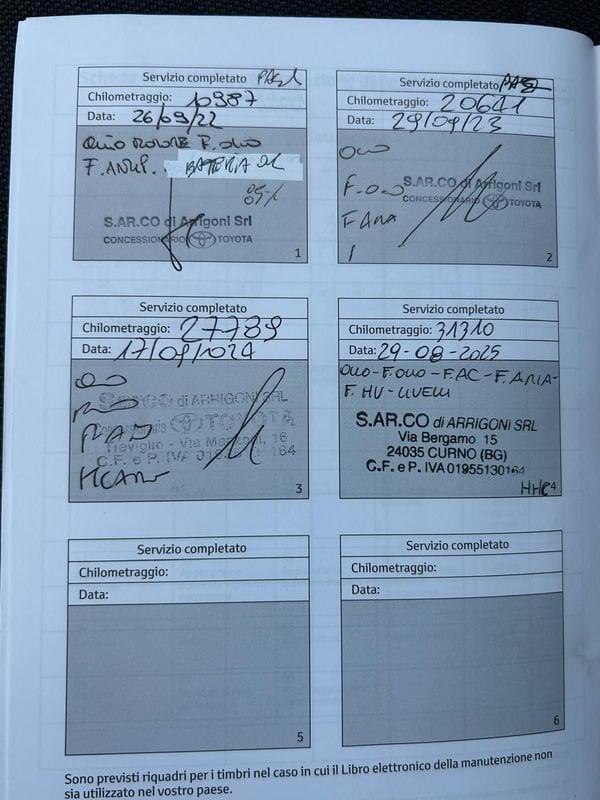 Servizio completato
Chilometraggio: 10987
Data: 26/09/22
OLIO MOTORE F. OLIO
F. ANTIP. BATTERIA OK
85%
S.AR.CO di Arrigoni Srl
CONCESSIONARIO TOYOTA
1
Servizio completato
Chilometraggio: 20641
Data: 29/09/23
OLIO
F. OLIO
S.AR.CO di Arrigoni Srl
CONCESSIONARIO TOYOTA
F ARIA
2
Servizio completato
Chilometraggio: 27789
Data: 17/09/2024
OLIO
S.AR.CO di ARRIGONI SRL
CONCESSIONARIA TOYOTA
Treviglio - Via Manzoni, 16
3
Servizio completato
Chilometraggio: 31310
Data: 29-08-2025
OLIO - F. OLIO - F.AC - F. ARIA -
F. HV - LIVELLI
S.AR.CO di ARRIGONI SRL
Via Bergamo 15
24035 CURNO (BG)
C.F. e P. IVA 01955130164
HHC
4
Servizio completato
Chilometraggio:
Data:
5
Servizio completato
Chilometraggio:
Data:
6
Sono previsti riquadri per i timbri nel caso in cui il Libro elettronico della manutenzione non
sia utilizzato nel vostro paese.